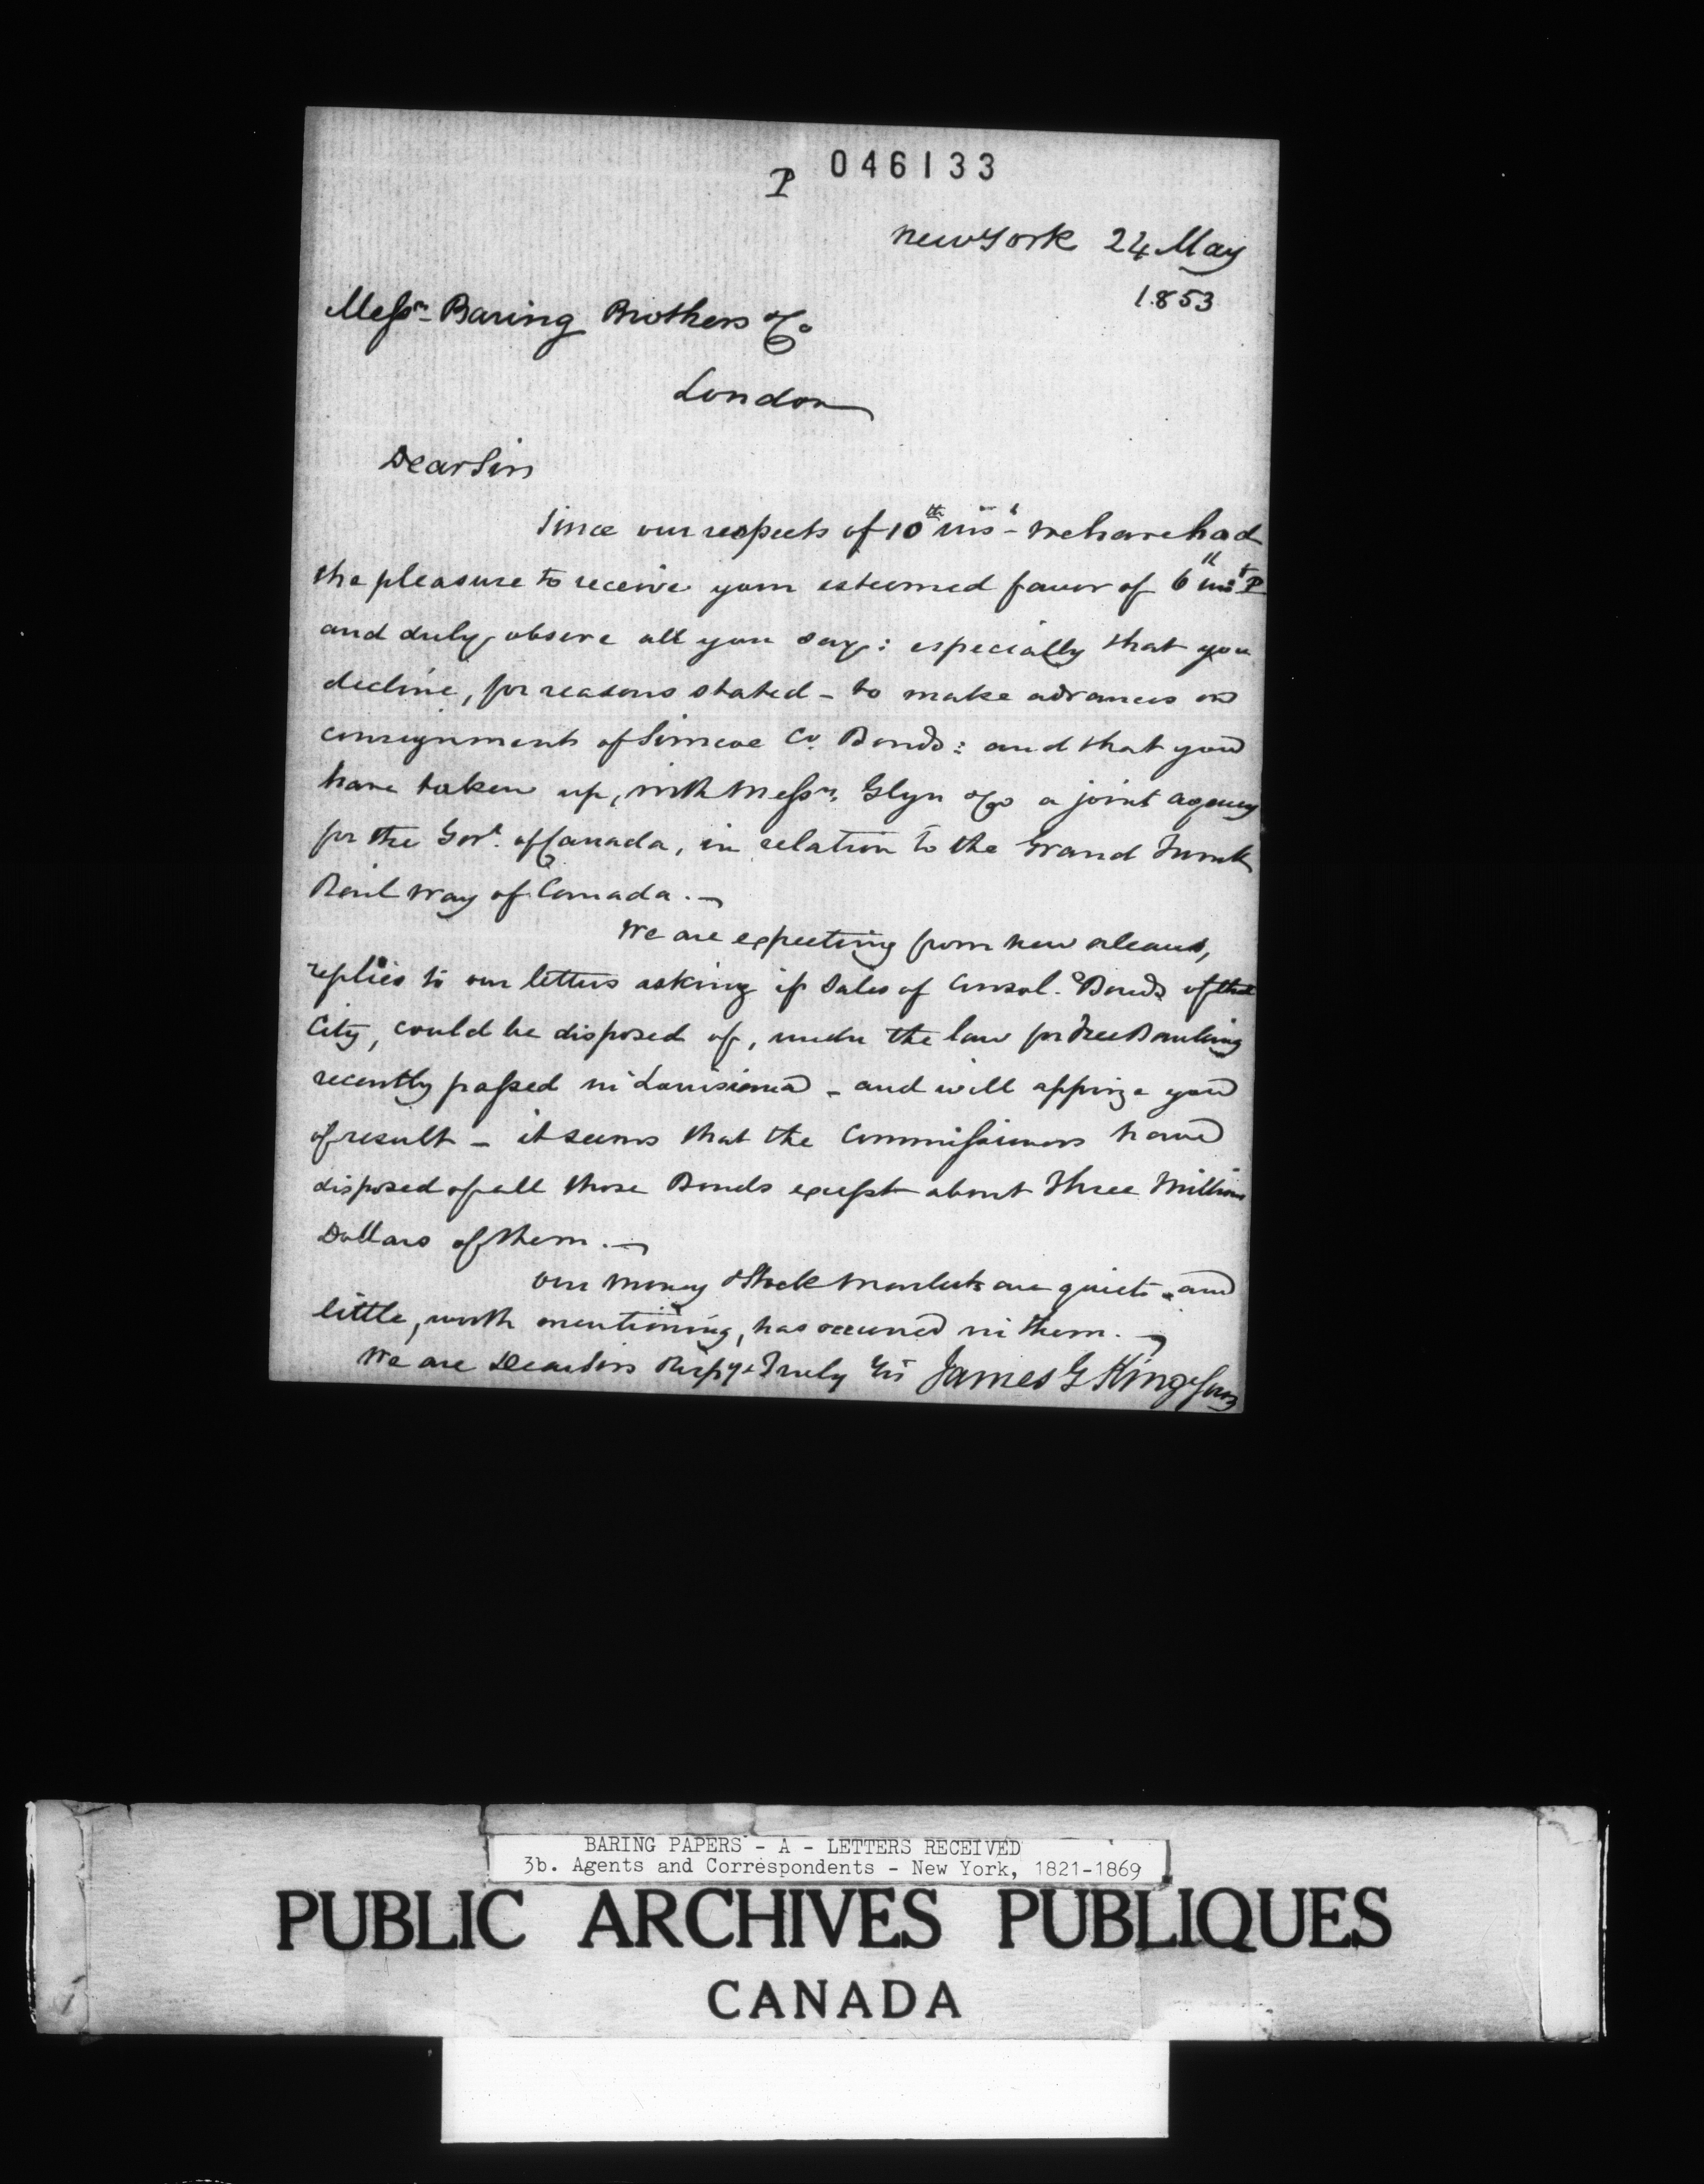 046133
P
New York 24 May
1853
Messrs. Baring Brothers & Co
London
Dear Sirs
Since our respects of 10th inst - we have had
the pleasure to receive your esteemed favor of 6th inst P
and duly observe all you say: especially that you
decline, for reasons stated - to make advances on
consignments of Simcoe Co. Bonds: and that you
have taken up, with Messrs. Glyn & Co a joint agency
for the Govt. of Canada, in relation to the Grand Trunk
Rail Way of Canada. -
We are expecting from New Orleans,
replies to our letters asking if Sales of Consol. Bonds of that
City, could be disposed of, under the law for Free Banking
recently passed in Louisiana - and will apprize you
of result - it seems that the Commissioners have
disposed of all those Bonds except about Three Million
Dollars of them. -
Our Money & Stock Markets are quiet - and
little, worth mentioning, has occurred in them. -
We are Dear Sirs Respy & Truly Yrs James G King & Sons
BARING PAPERS - A - LETTERS RECEIVED
3b. Agents and Correspondents - New York, 1821-1869
PUBLIC ARCHIVES PUBLIQUES
CANADA